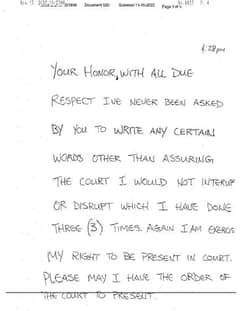 Document 580
1:28pm
YOUR HONOR, WITH ALL DUE
RESPECT I'VE NEVER BEEN ASKED
BY YOU TO WRITE ANY CERTAIN
WORDS OTHER THAN ASSURING
THE COURT I WOULD NOT INTERUP
OR DISRUPT WHICH I HAVE DONE
THREE (3) TIMES. AGAIN I AM EXERCIS
MY RIGHT TO BE PRESENT IN COURT.
PLEASE MAY I HAVE THE ORDER OF
THE COURT TO PRESENT.